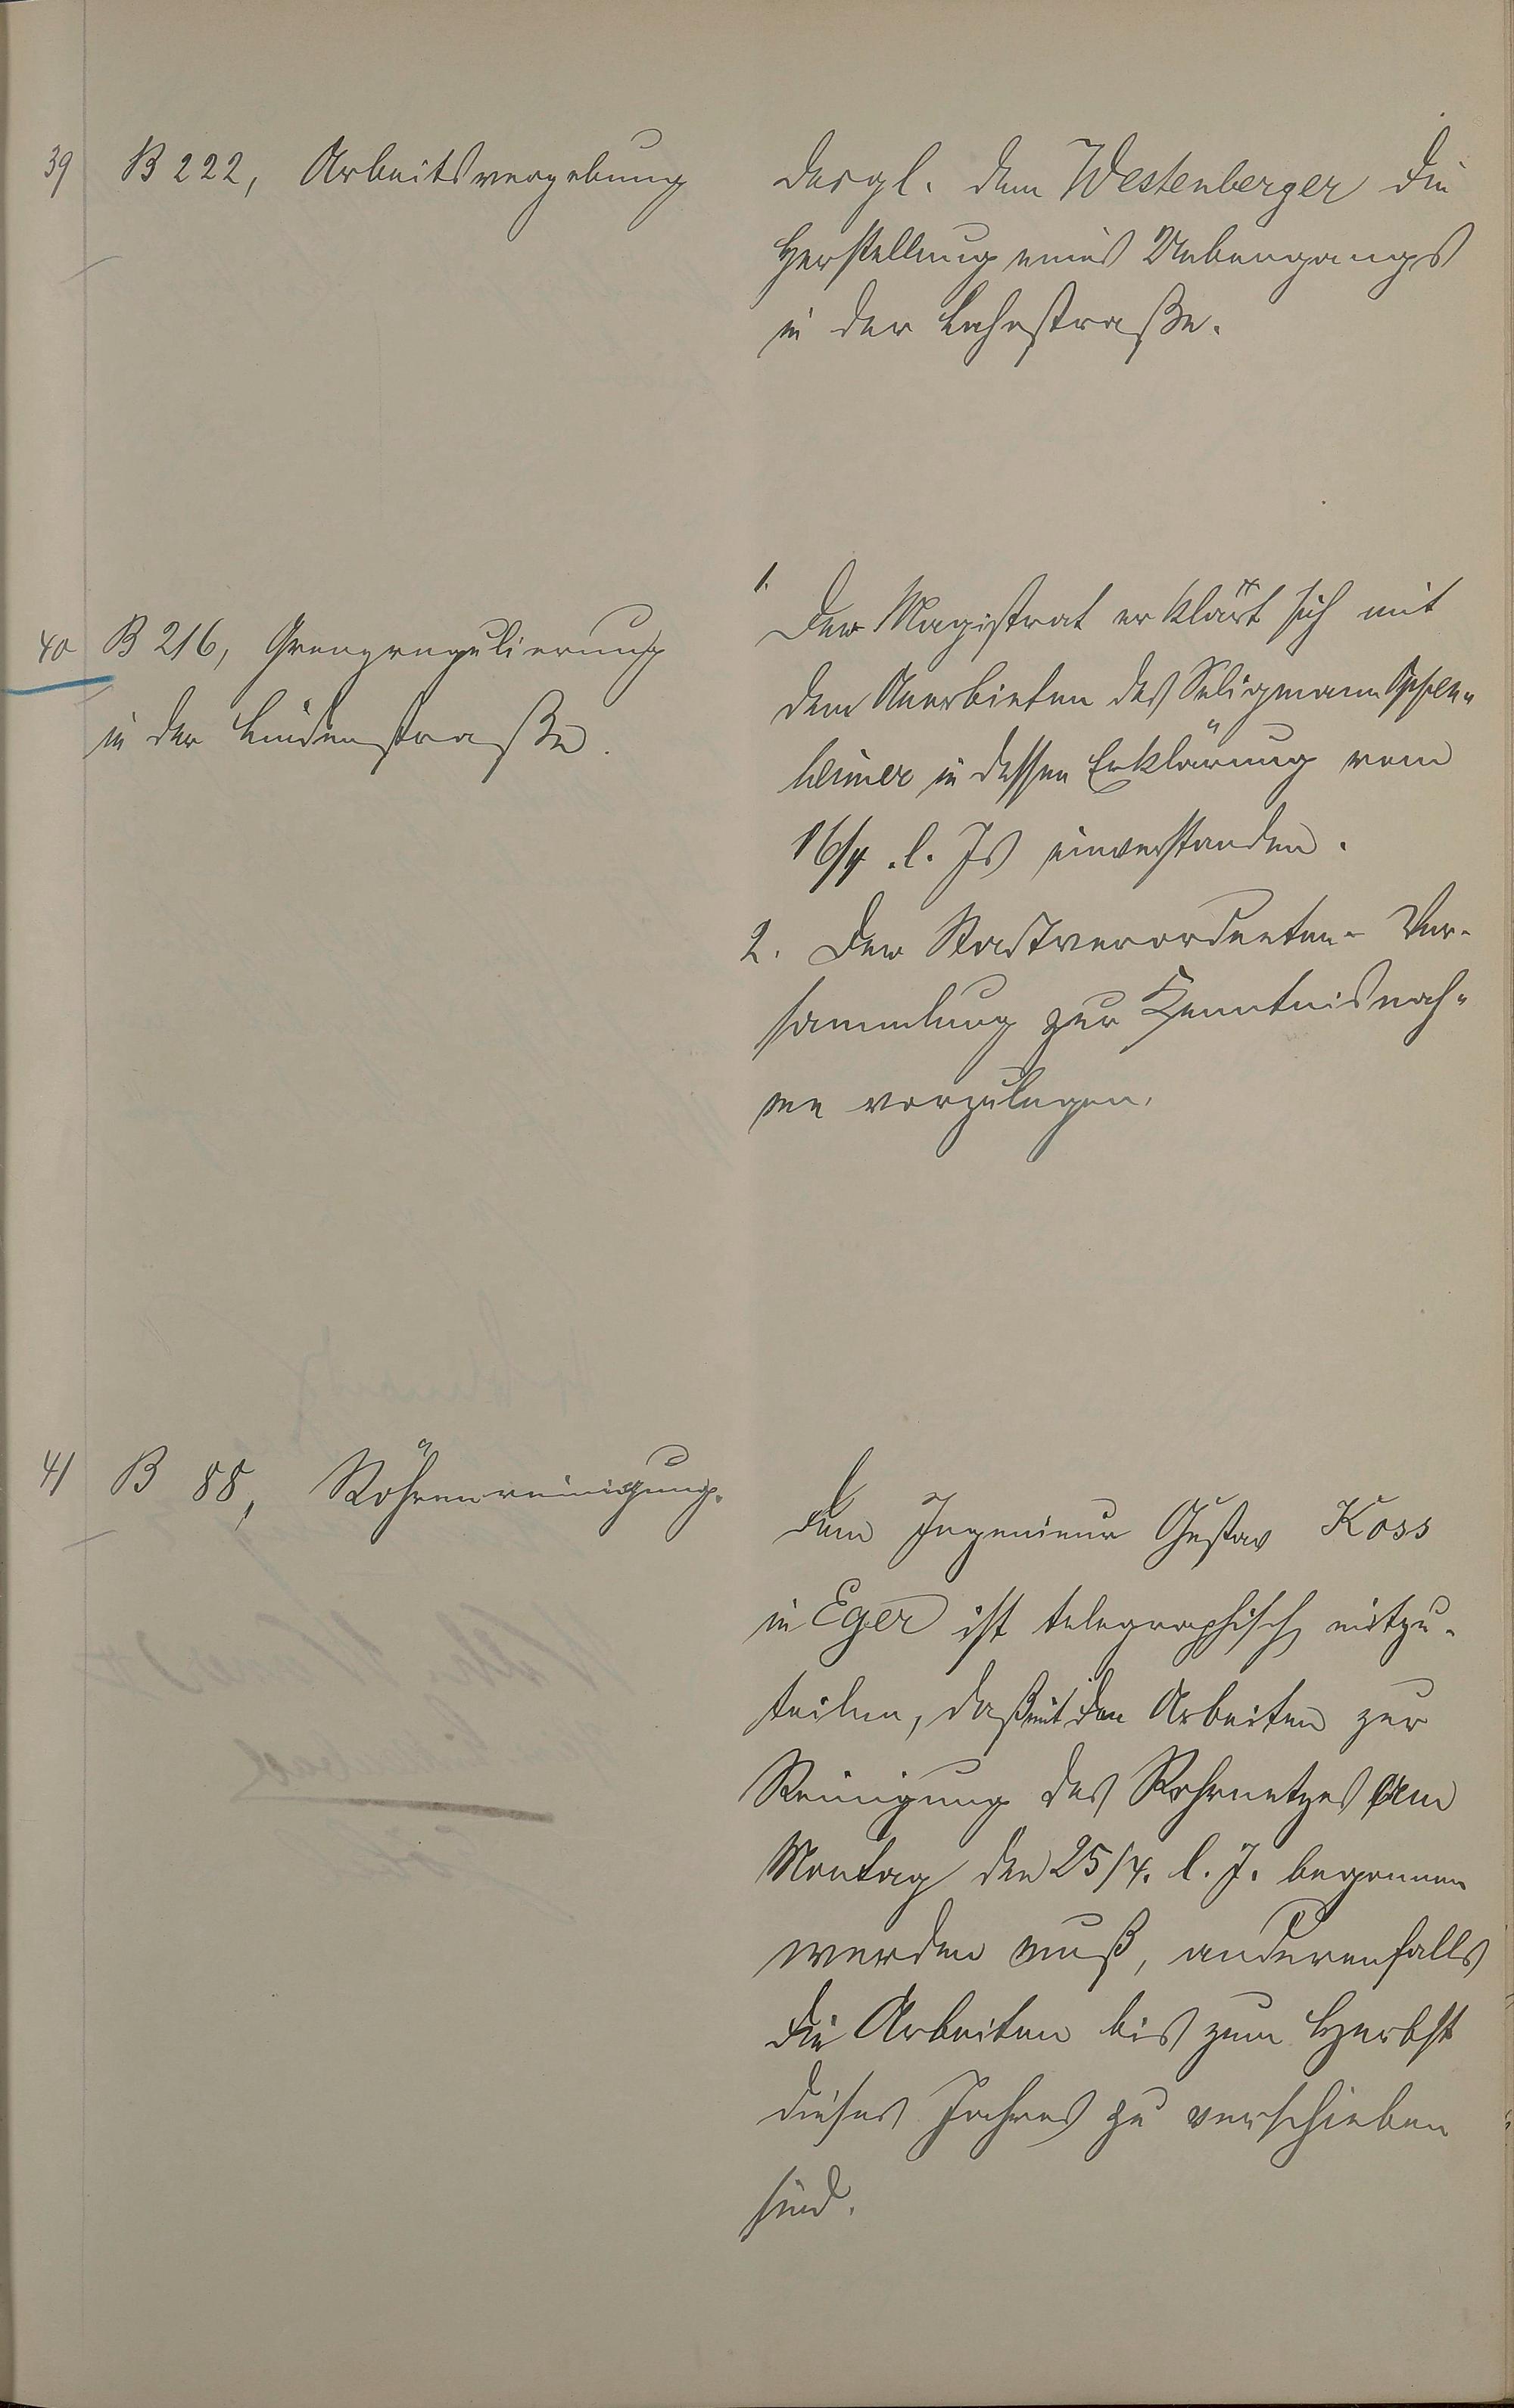 39 B 222, Arbeitsvergebung
desgl. dem Westenberger die
Herstellung eines Uebergangs
in der Lahnstraße.
40 B 216, Grenzregulierung
in der Lindenstraße.
1. Der Magistrat erklärt sich mit
dem Anerbieten des Seligmann Oppen-
heimer in dessen Erklärung vom
16/4. l. Js einverstanden.
2. Der Stadtverordneten- Ver-
sammlung zur Kenntnisnah-
me vorzulegen.
41 B 88, Röhrenreinigung.
Dem Ingenieur Gustav Koss
in Eger ist telegraphisch mitzu-
teilen, daß mit den Arbeiten zur
Reinigung des Rohrnetzes am
Montag den 25/4. l. J. begonnen
werden muß, anderenfalls
die Arbeiten bis zum Herbst
dieses Jahres zu verschieben
sind.